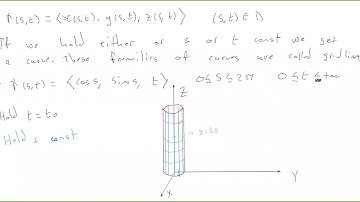 r(s,t) = ⟨x(s,t), y(s,t), z(s,t)⟩ (s,t) ∈ D
If we hold either or s or t const we get
a curve. These families of curves are called gridlin
r(s,t) = ⟨cos s, sin s, t⟩ 0 ≤ s ≤ 2π 0 ≤ t ≤ +∞
Hold t = t0
Hold s const
z
z=t0
Y
X